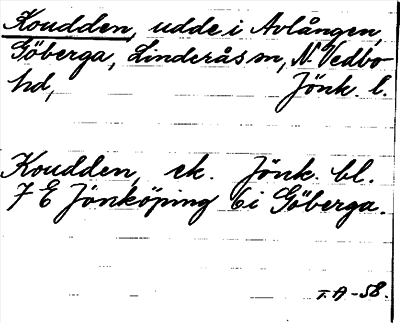 Koudden, udde i Avlången,
Göberga, Linderås sn, N. Vedbo
hd, Jönk. l.
Koudden, ek. Jönk. bl.
7 E Jönköping 6i Göberga.
T.A -58.